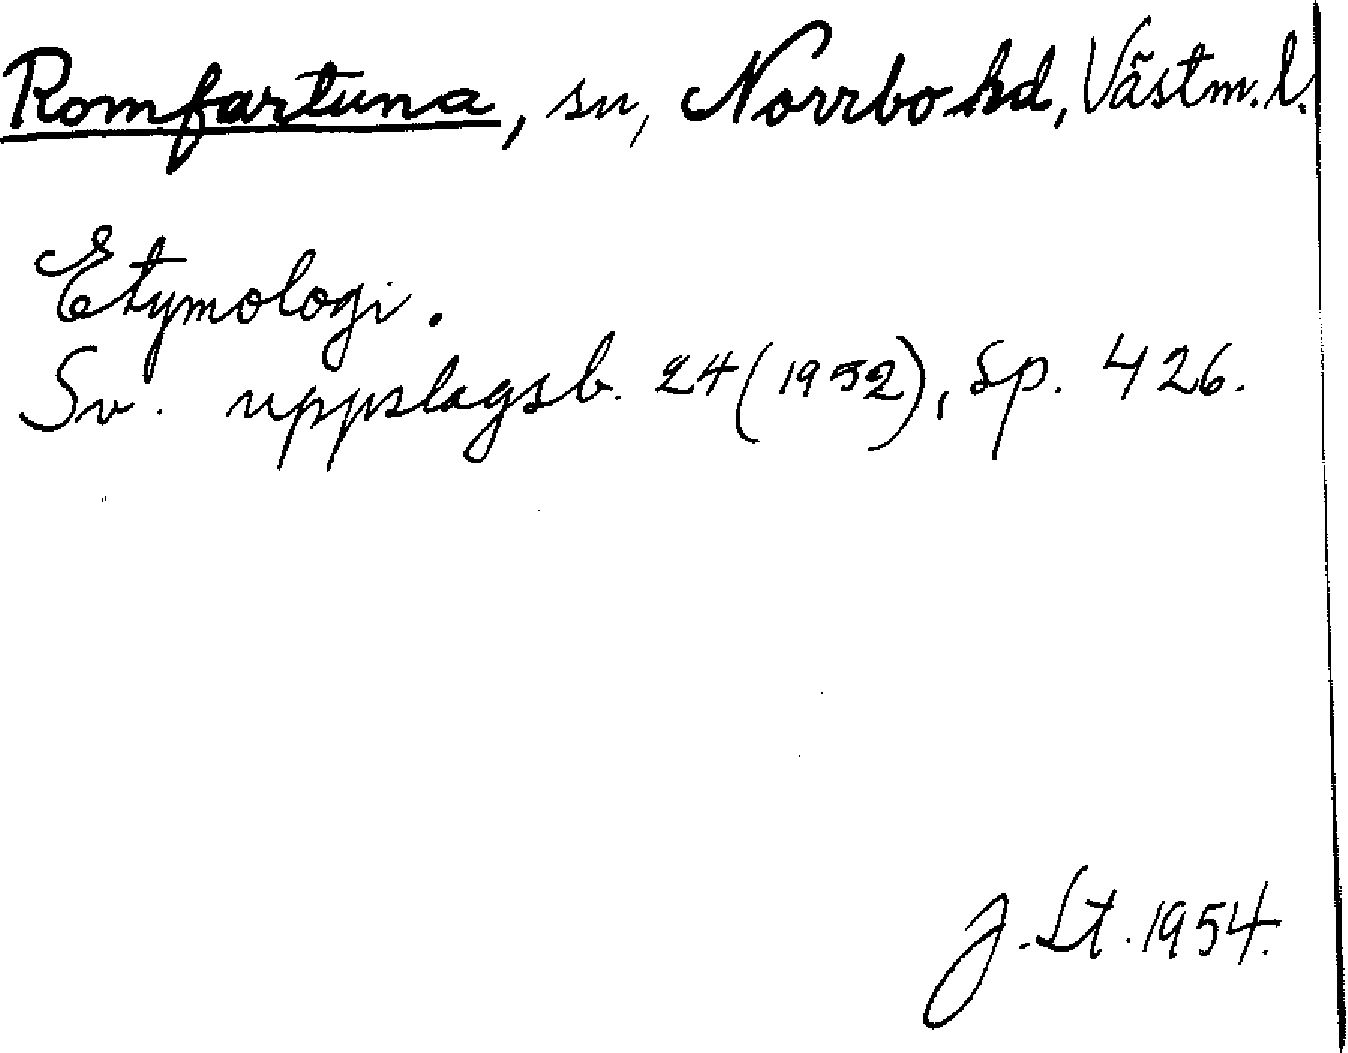 Romfartuna, sn, Norrbo hd, Västm. l.
Etymologi.
Sv. uppslagsb. 24 (1952), sp. 426.
J. St. 1954.